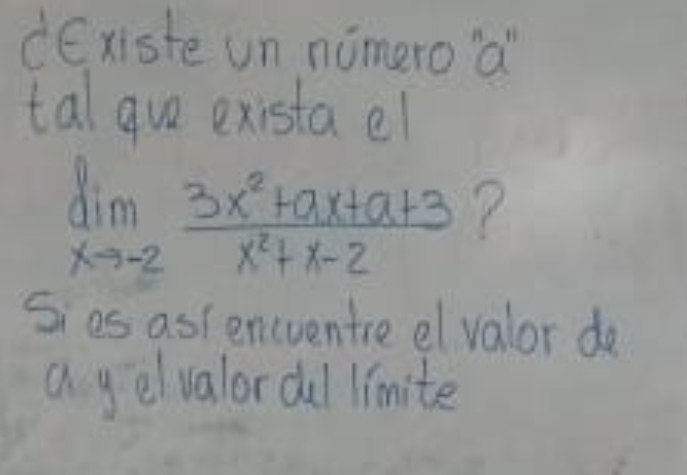 ¿Existe un número "a"
tal que exista el
lim 3x²+ax+a+3 ?
x→-2 x²+x-2
Si es así encuentre el valor de
a y el valor del límite